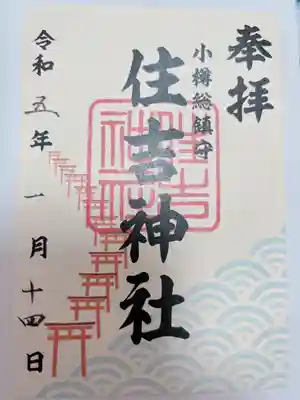 奉拝
小樽総鎮守
住吉神社
令和五年一月十四日
住吉神社